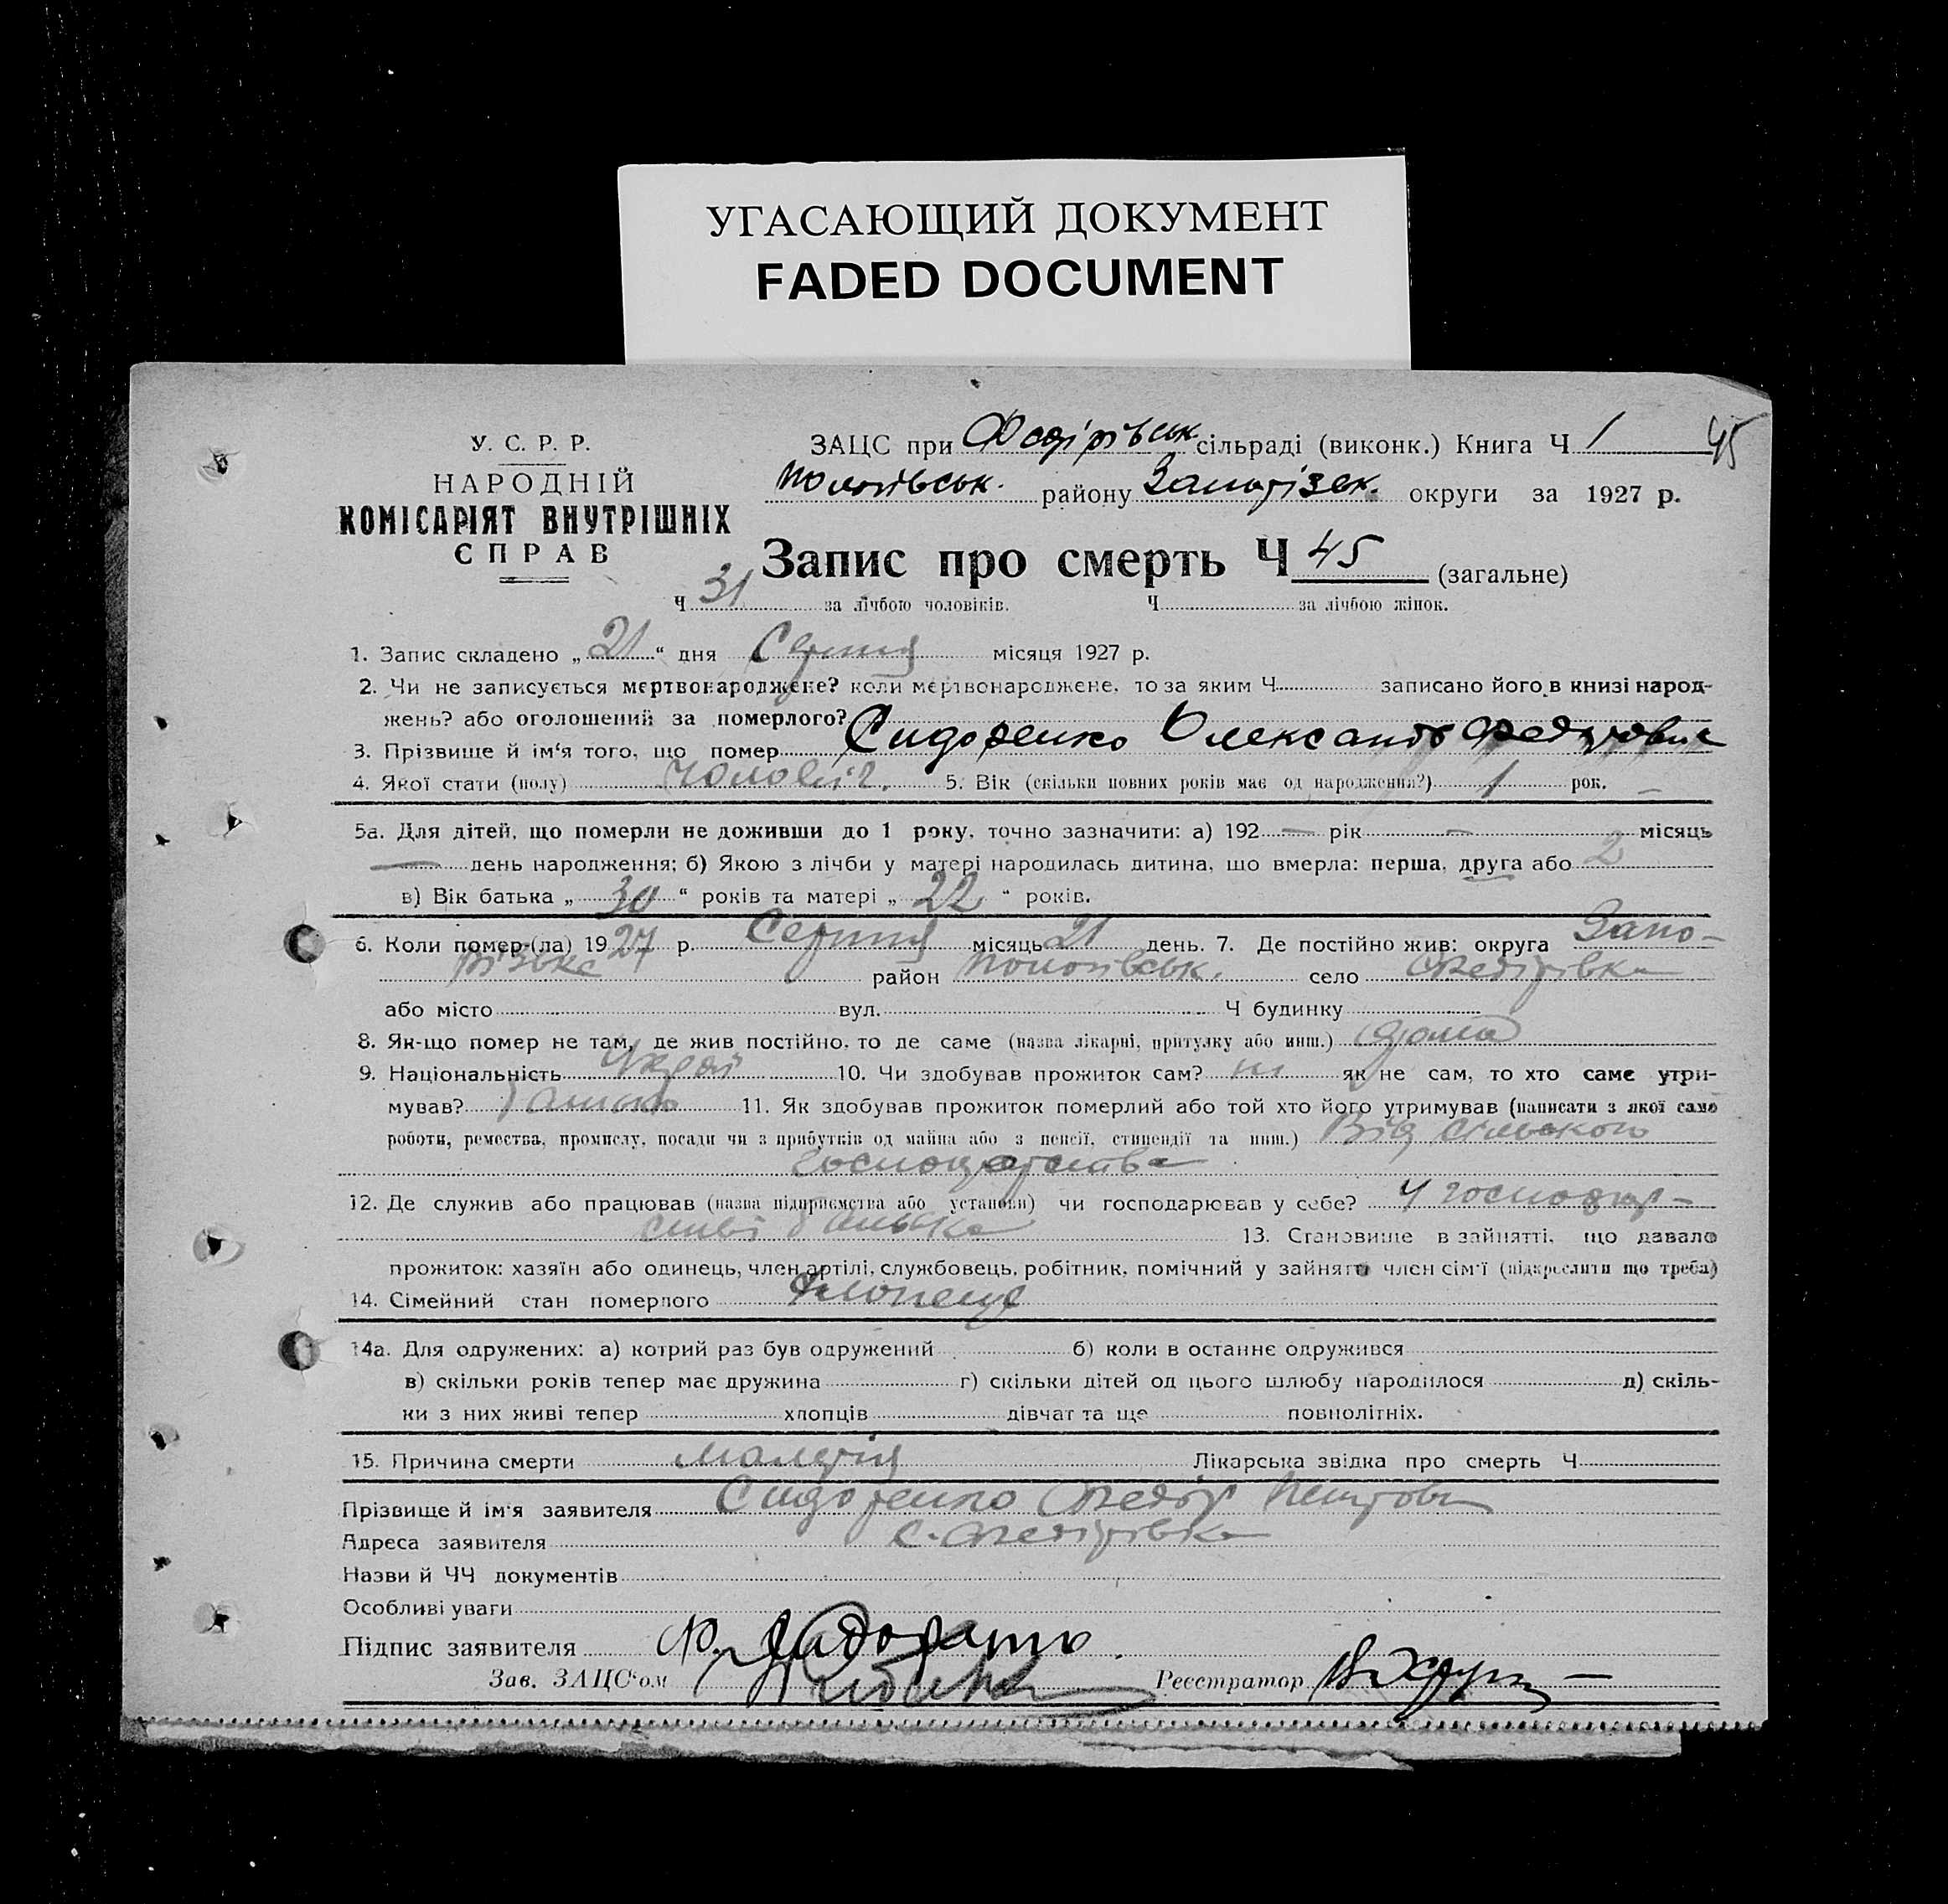 УГАСАЮЩИЙ ДОКУМЕНТ
FADED DOCUMENT
У. С. Р. Р.
НАРОДНІЙ
КОМІСАРІЯТ ВНУТРІШНІХ
СПРАВ
ЗАЦС при Федірівськ сільраді (виконк.) Книга Ч 1 45
Пологівськ. району Запорізьк. округи за 1927 р.
Запис про смерть Ч 45 (загальне)
Ч 31 за лічбою чоловіків. Ч за лічбою жінок.
1. Запис складено „21“ дня Серпня місяця 1927 р.
2. Чи не записується мертвонароджене? коли мертвонароджене, то за яким Ч записано його в книзі народ-
жень? або оголошений за померлого?
3. Прізвище й ім'я того, що помер Сидоренко Олександр Федорович
4. Якої стати (полу) Чоловіч. 5. Вік (скільки повних років має од народження?) 1 рок. —
5а. Для дітей, що померли не доживши до 1 року, точно зазначити: а) 192 — рік — місяць
— день народження; б) Якою з лічби у матері народилась дитина, що вмерла: перша, друга або 2
в) Вік батька „30“ років та матері „22“ років.
6. Коли помер-(ла) 1927 р. Серпня місяць 21 день. 7. Де постійно жив: округа Запо-
різьке район Пологівськ. село Федірівка
або місто вул. Ч будинку
8. Як-що помер не там, де жив постійно, то де саме (назва лікарні, притулку або инш.) дома
9. Національність Украї 10. Чи здобував прожиток сам? ні як не сам, то хто саме утри-
мував? батько 11. Як здобував прожиток померлий або той хто його утримував (написати з якої саме
роботи, ремества, промислу, посади чи з прибутків од майна або з пенсії, стипендії та инш.) Від сільського
господарства
12. Де служив або працював (назва підприємства або установи) чи господарював у себе? У господар-
стві батька 13. Становище в зайнятті, що давало
прожиток: хазяїн або одинець, член артілі, службовець, робітник, помічний у зайнятт член сім'ї (підкреслити що треба)
14. Сімейний стан померлого Хлопець
14а. Для одружених: а) котрий раз був одружений б) коли в останнє одружився
в) скільки років тепер має дружина г) скільки дітей од цього шлюбу народилося д) скіль-
ки з них живі тепер хлопців дівчат та ще повнолітніх.
15. Причина смерти Малярія Лікарська звідка про смерть Ч
Прізвище й ім'я заявителя Сидоренко Федор Петрови
Адреса заявителя с. Федірівка
Назви й ЧЧ документів
Особливі уваги
Підпис заявителя Ф.
Зав. ЗАЦС'ом Реєстратор